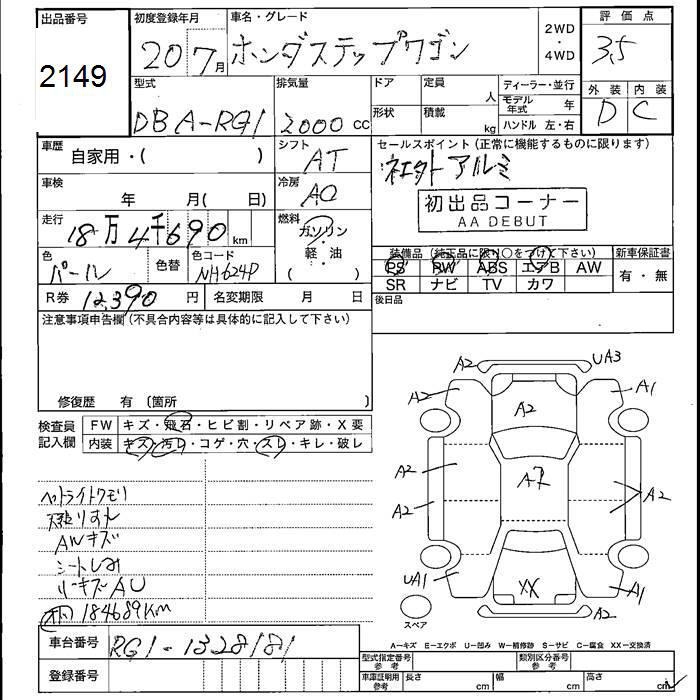 出品番号 初度登録年月 車名・グレード 2WD 評価点
2149 20 7月 ホンダステップワゴン ・4WD 3.5
型式 排気量 ドア 定員 人 ディーラー・並行 外装 内装
DBA-RG1 2000 cc 形状 積載 kg モデル年式 年 D C
ハンドル 左・右
車歴 自家用・( ) シフト AT セールスポイント(正常に機能するものに限ります)
車検 年 月( 日) 冷房 AC アルミ
初出品コーナー
AA DEBUT
走行 18万4千690km 燃料 ガソリン・軽油( )
色 パール 色替 色コード NH624P
装備品(純正品に限り○をつけて下さい) 新車保証書
PS PW ABS エアB AW 有・無
SR ナビ TV カワ
R券 12,390円 名変期限 月 日 後日品
注意事項申告欄(不具合内容等は具体的に記入して下さい)
修復歴 有 (箇所 )
検査員記入欄 FW キズ・飛石・ヒビ割・リペア跡・X要
内装 キズ・汚れ・コゲ・穴・スレ・キレ・破レ
ヘットライトクモリ
AWキズ
シートしみ
リーキズAU
184689KM
A2 UA3
A2 A1
A2
A2 A2
A2 A2
UA1 A1
XX
A2
スペア
A=キズ E=エクボ U=凹み W=補修跡 S=サビ C=腐食 XX=交換済
車台番号 RG1-1328181
型式指定番号 参考 類別区分番号 参考
登録番号 車庫証明用 参考 長さ cm 幅 cm 高さ cm